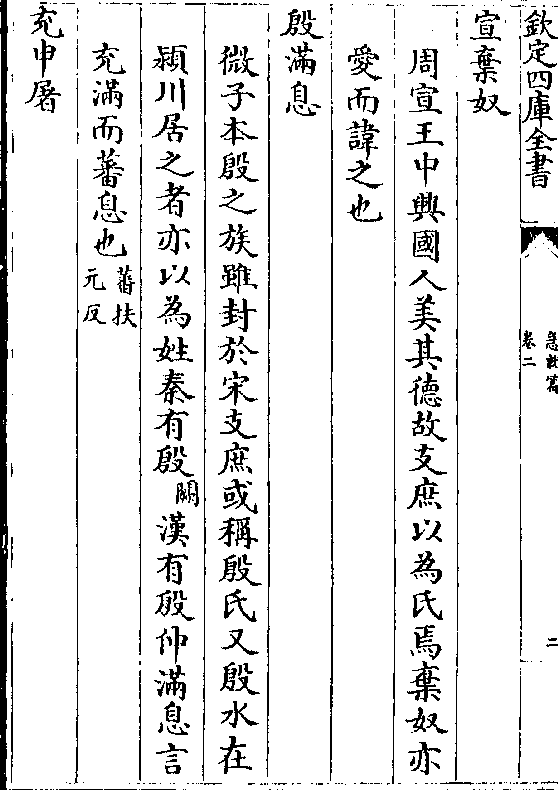 欽定四庫全書
急就篇
卷二
二
宣棄奴
周宣王中興國人美其德故支庶以為氏焉棄奴亦
愛而諱之也
殷滿息
微子本殷之族雖封於宋支庶或稱殷氏又殷水在
潁川居之者亦以為姓秦有殷闕漢有殷仲滿息言
充滿而蕃息也蕃扶元反
充申屠